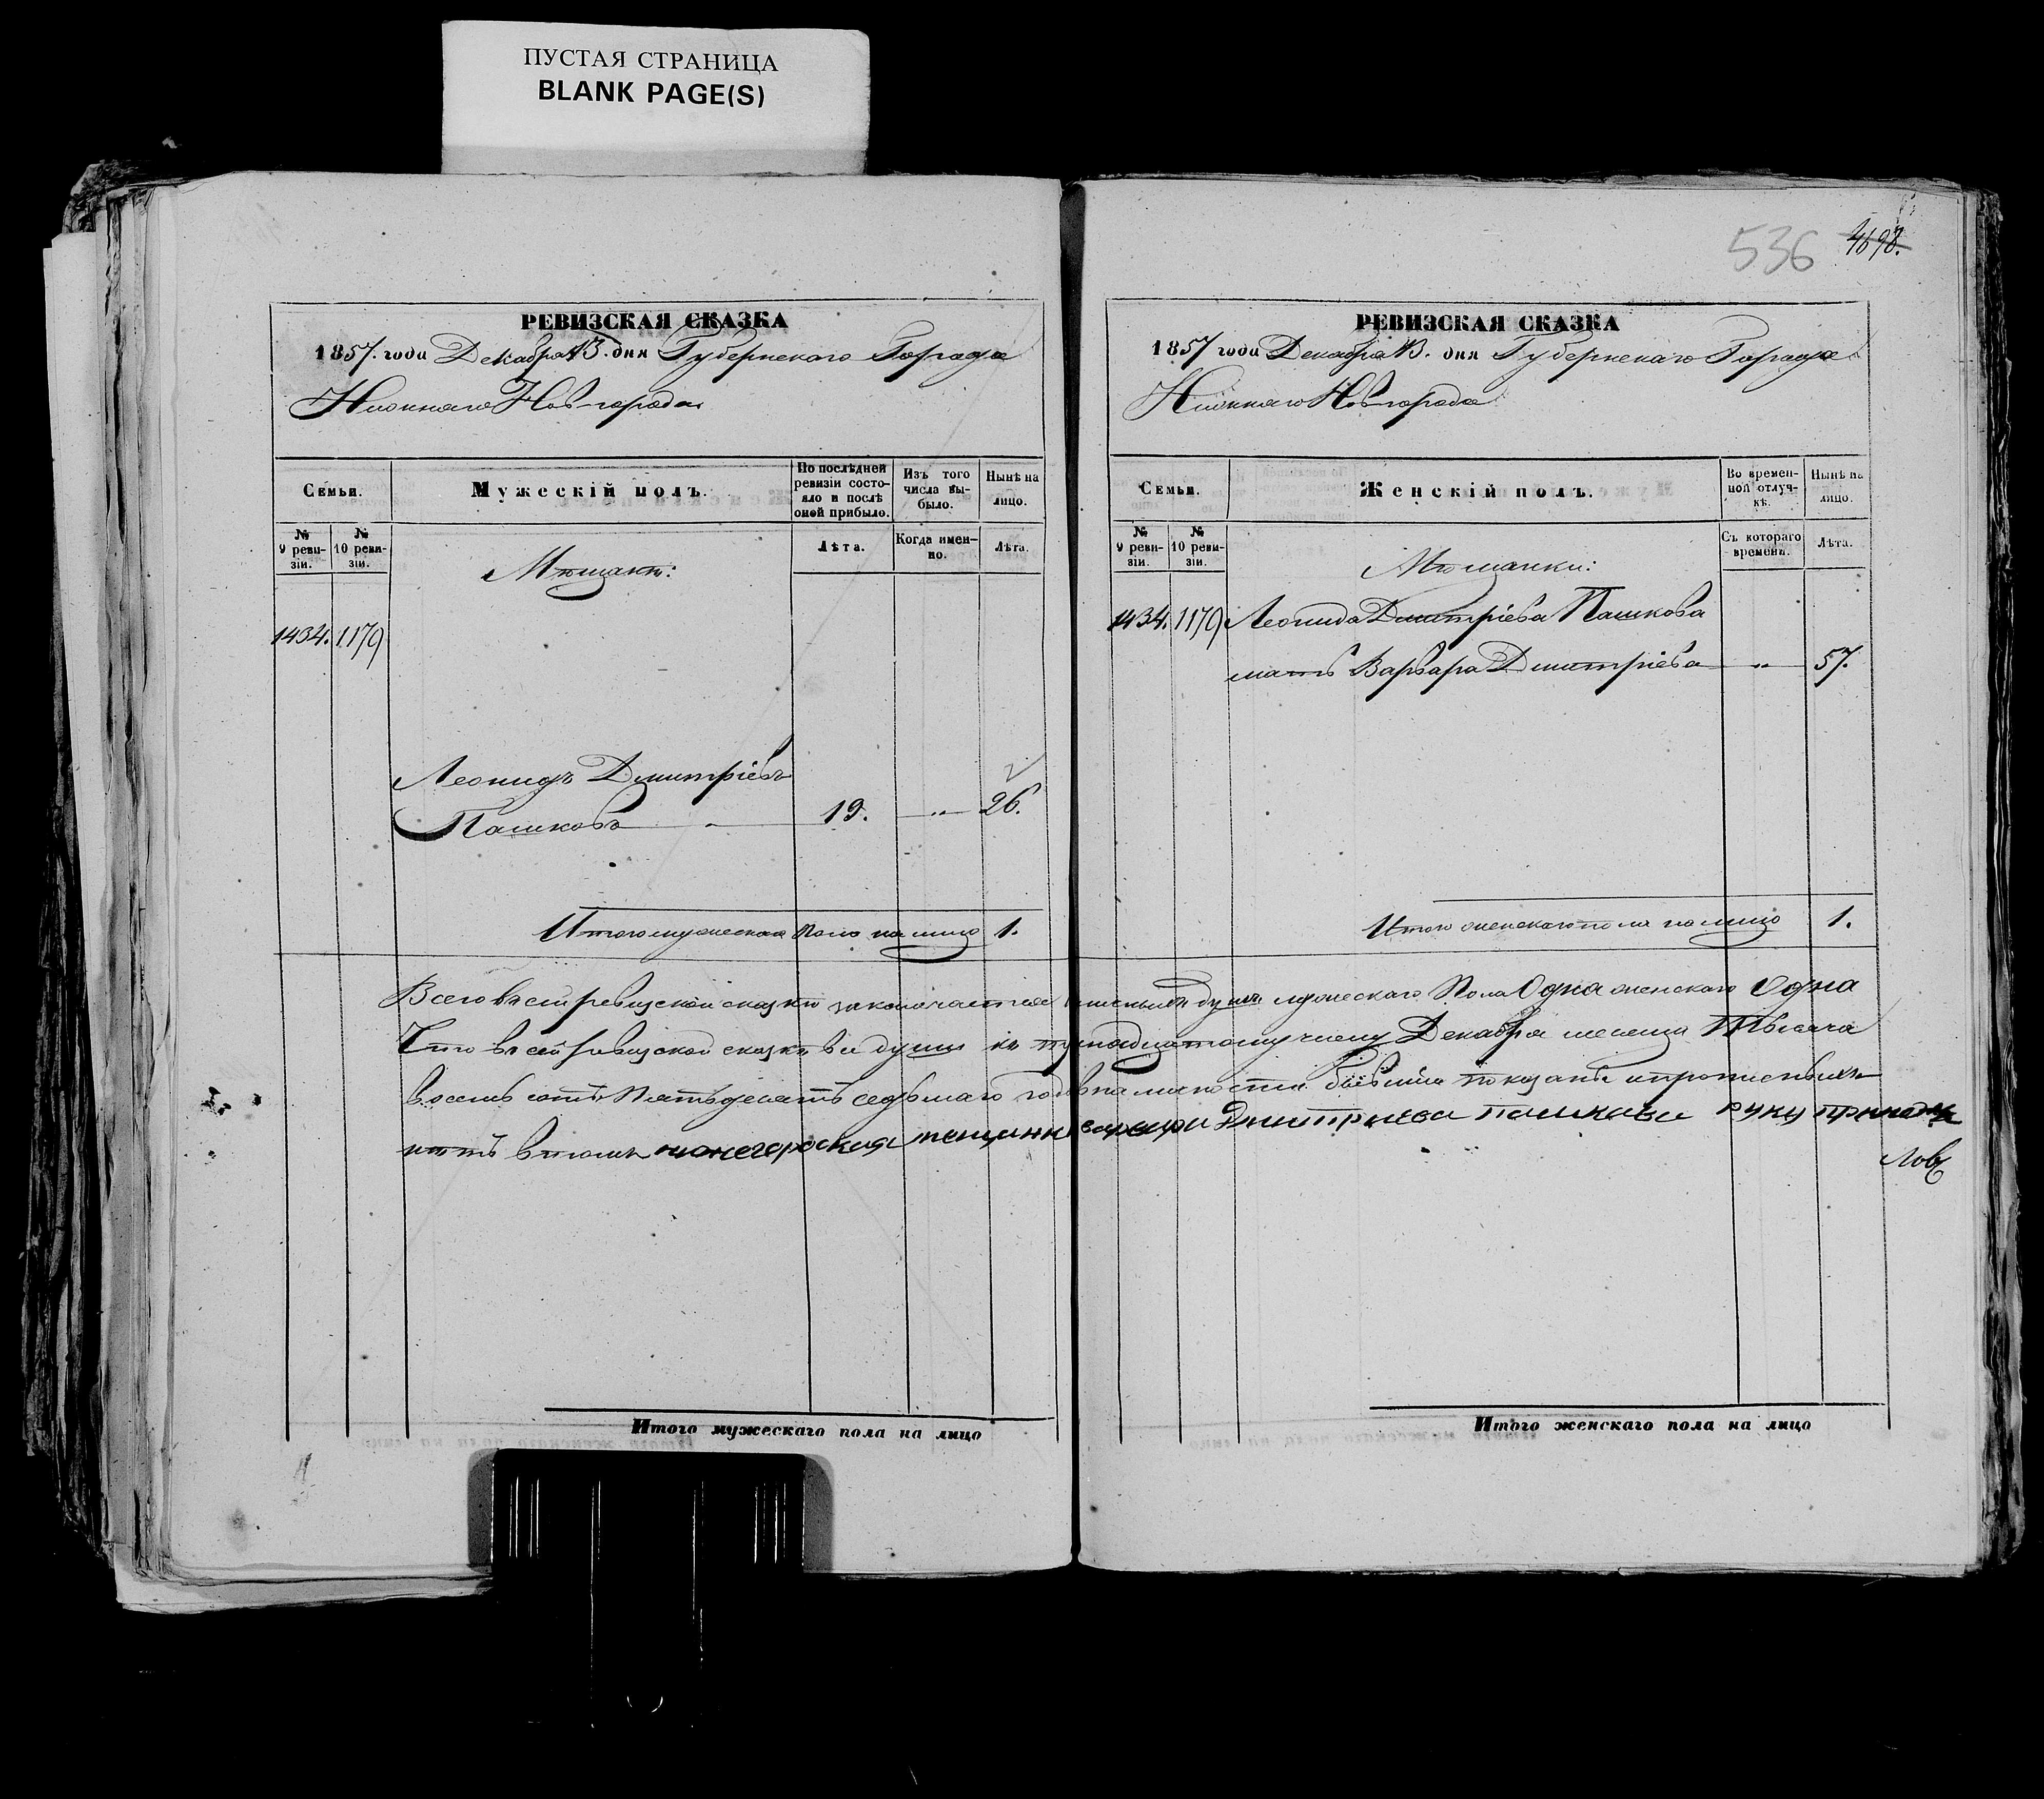 ПУСТАЯ СТРАНИЦА
BLANK PAGE(S)
РЕВИЗСКАЯ СКАЗКА
1857. года Декабря 13. дня Губернскаго Города
Нижняго Нов-города
Семьи.
Мужескій полъ.
По послѣдней ревизіи состояло и послѣ оной прибыло.
Изъ того числа выбыло.
Нынѣ на лицо.
№ 9 ревизіи.
№ 10 ревизіи.
Лѣта.
Когда именно.
Лѣта.
Мѣщане:
1434. 1179
Леонидъ Дмитріевъ
Пашковъ 19. „ 26.
Итого мужеска пола на лицо 1.
536 4698.
РЕВИЗСКАЯ СКАЗКА
1857 года Декабря 13. дня Губернскаго Города
Нижняго Нов-города
Семьи.
Женскій полъ.
Во временной отлучкѣ.
Нынѣ на лицо.
№ 9 ревизіи.
№ 10 ревизіи.
Съ котораго времени.
Лѣта.
Мѣщанки:
1434. 1179 Леонида Дмитріева Пашкова
мать Варвара Дмитріева „ 57.
Итого женскаго пола на лицо 1.
Всего в сей ревизской сказкѣ заключается душъ мужескаго Пола Одна женскаго Одна
Что в сей Ревизской сказкѣ все души Декабря месяца Тысяча
восемь сотъ Пятьдесятъ седьмаго года показаны и прописныхъ
нѣтъ в томъ нижегороская мещанка варвара Дмитриева пашкава руку прилажи
лов
Итого мужескаго пола на лицо
Итого женскаго пола на лицо